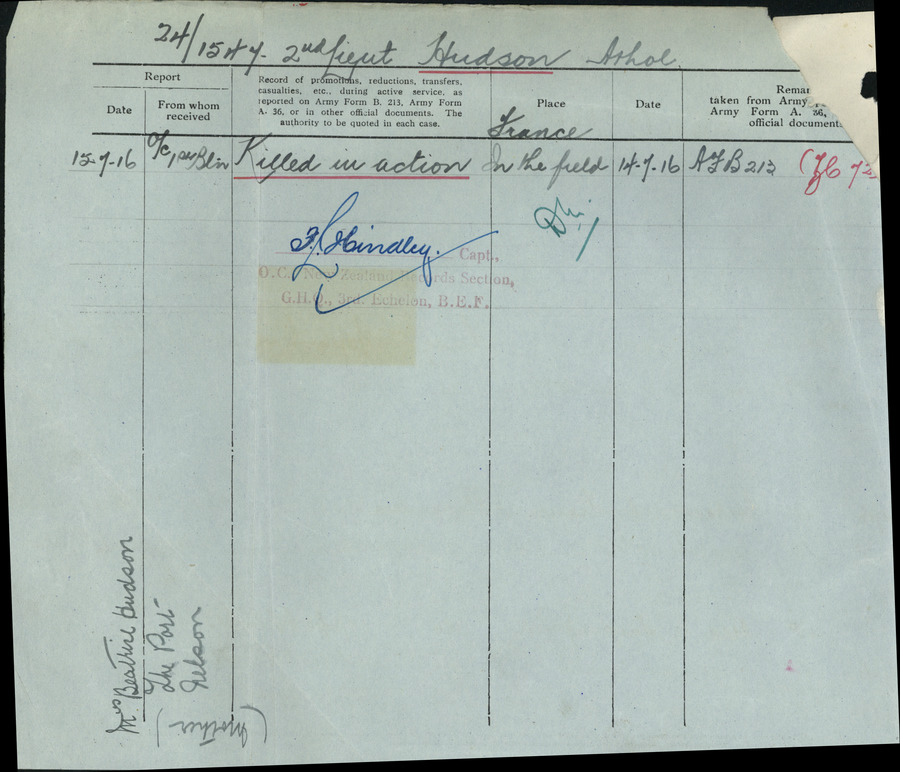 24/1547. 2nd Lieut Hudson Athol.
Report
Date
From whom received
Record of promotions, reductions, transfers,
casualties, etc., during active service, as
reported on Army Form B. 213, Army Form
A. 36, or in other official documents. The
authority to be quoted in each case.
Place
Date
Remar
taken from Army
Army Form A. 36,
official document
France
15-7-16 O/C, 1st Bln Killed in action In the field 14-7-16 A F B 213
F. Hindley. Capt.,
O.C. New Zealand Records Section,
G.H.Q., 3rd. Echelon, B.E.F.
Mrs Beatrice Hudson
The Port
Nelson
(Mother)